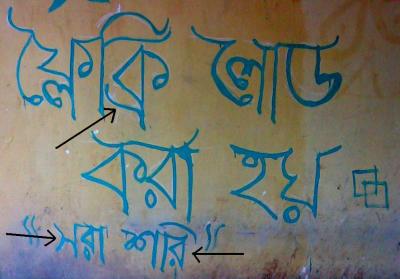 ফ্লেকি লোড
করা হয়
"সরা শারি"